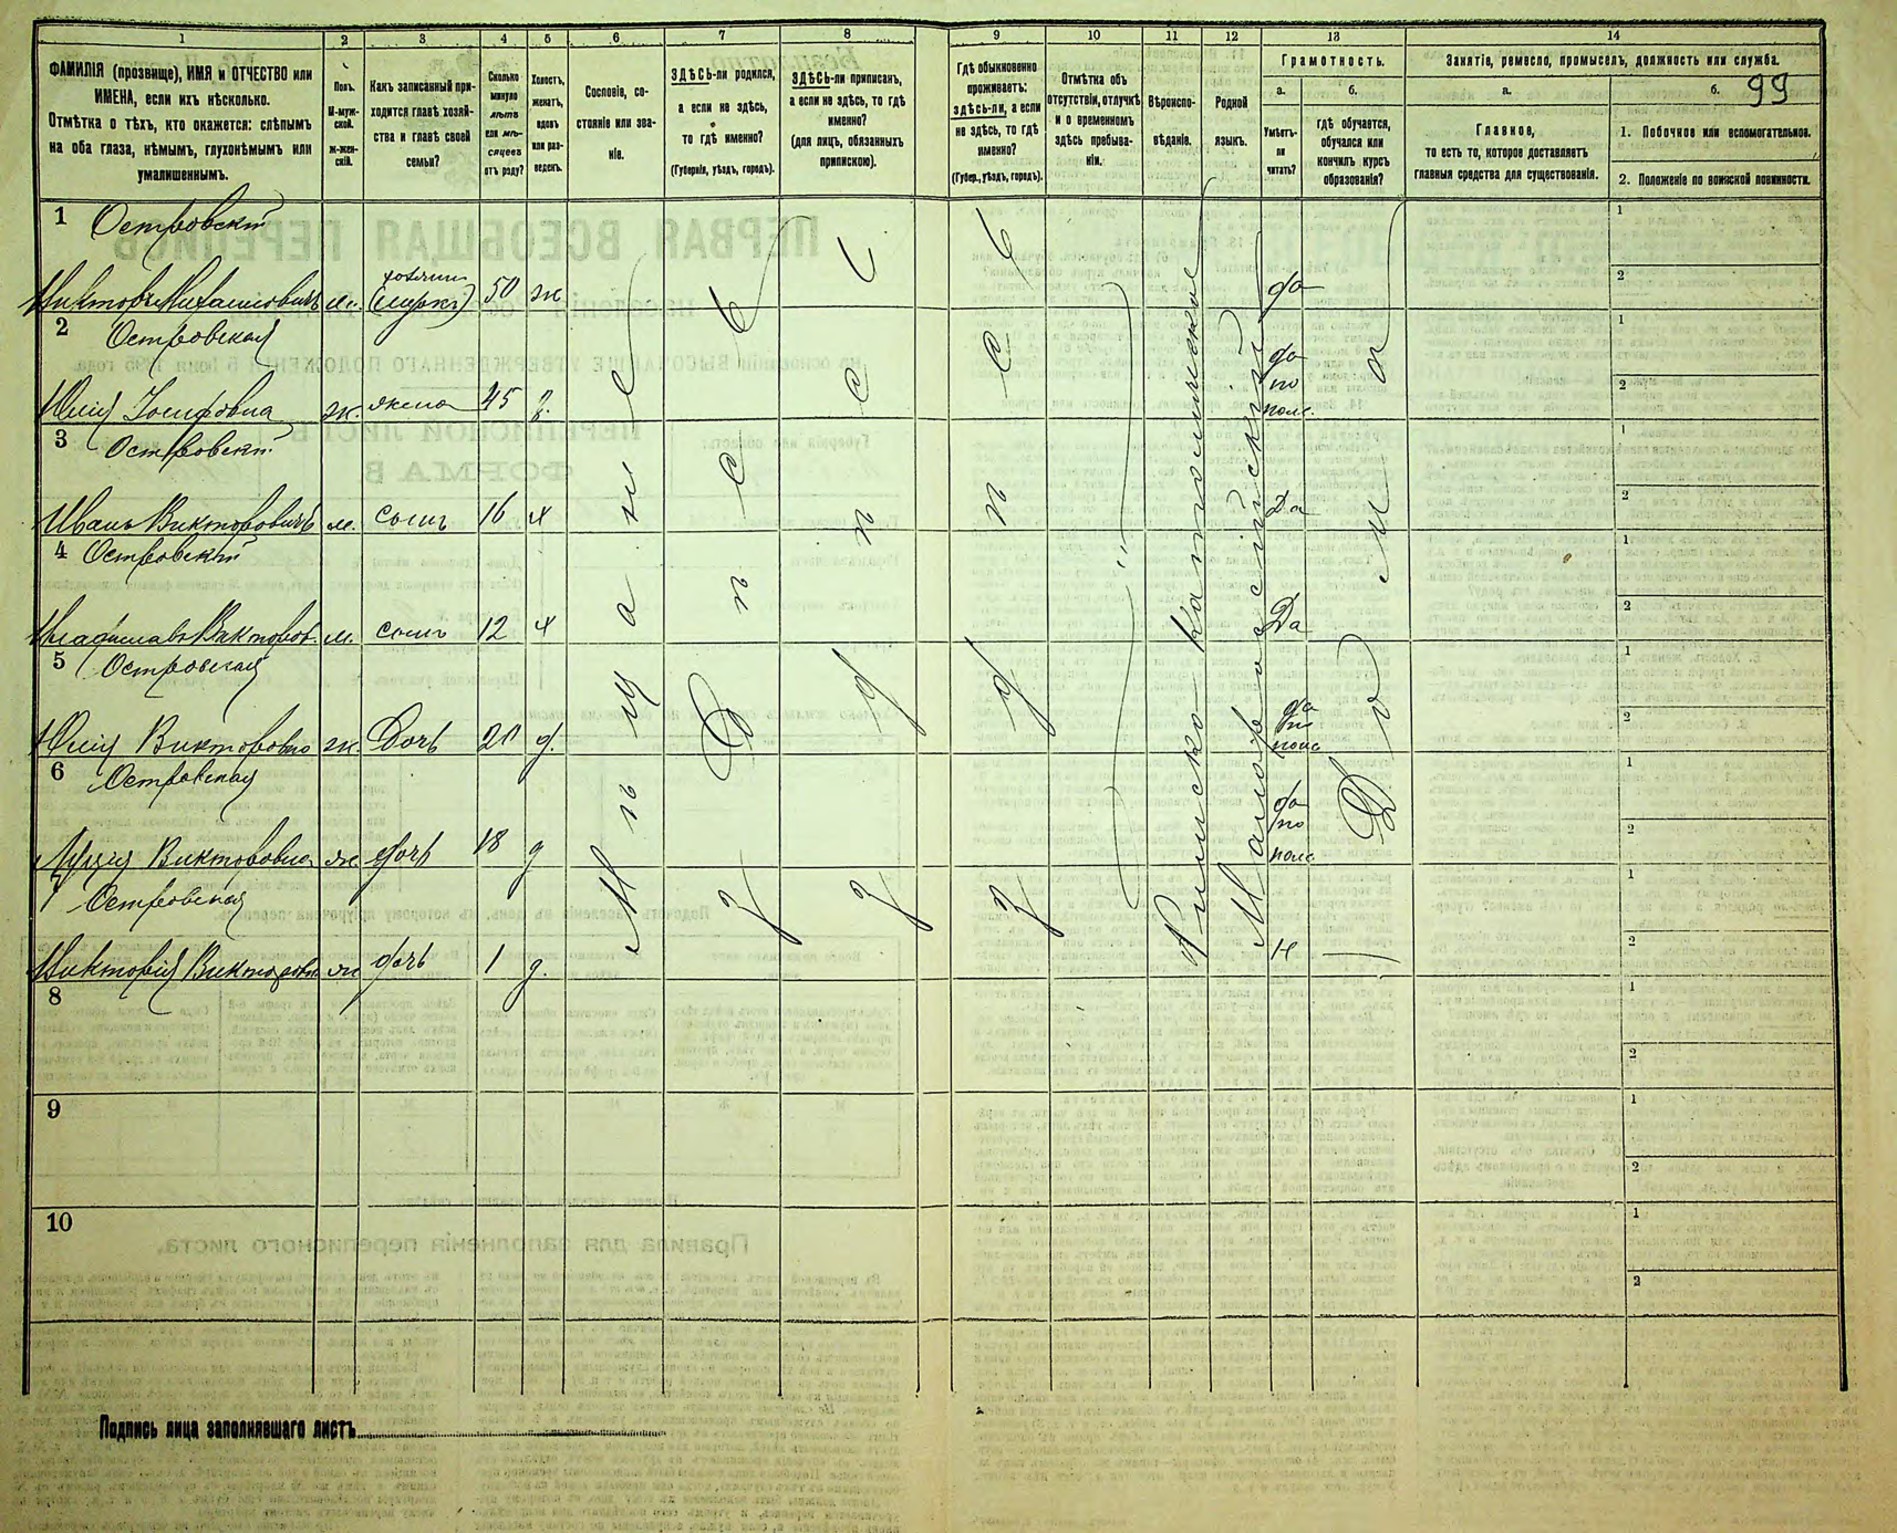 1 2 3 4 5 6 7 8 9 10 11 12 13 14
99
ФАМИЛІЯ (прозвище), ИМЯ и ОТЧЕСТВО или
ИМЕНА, если ихъ нѣсколько.
Отмѣтка о тѣхъ, кто окажется: слѣпымъ
на оба глаза, нѣмымъ, глухонѣмымъ или
умалишеннымъ.
Полъ.
М-муж-
ской.
Ж-жен-
скій.
Какъ записанный при-
ходится главѣ хозяй-
ства и главѣ своей
семьи?
Сколько
минуло
лѣтъ
или мѣ-
сяцевъ
отъ роду?
Холостъ,
женатъ,
вдовъ
или раз-
веденъ.
Сословіе, со-
стояніе или зва-
ніе.
ЗДѢСЬ-ли родился,
а если не здѣсь,
то гдѣ именно?
(Губернія, уѣздъ, городъ).
ЗДѢСЬ-ли приписанъ,
а если не здѣсь, то гдѣ
именно?
(для лицъ, обязанныхъ
припискою).
Гдѣ обыкновенно
проживаетъ:
здѣсь-ли, а если
не здѣсь, то гдѣ
именно?
(Губер., уѣздъ, городъ).
Отмѣтка объ
отсутствіи, отлучкѣ
и о временномъ
здѣсь пребыва-
ніи.
Вѣроиспо-
вѣданіе.
Родной
языкъ.
Грамотность.
а.
Умѣетъ-
ли
читать?
б.
гдѣ обучается,
обучался или
кончилъ курсъ
образованія?
Занятіе, ремесло, промыселъ, должность или служба.
а.
Главное,
то есть то, которое доставляетъ
главныя средства для существованія.
б.
1. Побочное или вспомогательное.
2. Положеніе по воинской повинности.
1 Островскій
Викторъ Михайловичъ м. хозяинъ 50 ж да
2 Островская
Юлія Іосифовна ж. жена 45 з. да по полс.
3 Островскій
Иванъ Викторовичъ м. сынъ 16 х Да
4 Островскій
Владиславъ Викторов. м. сынъ 12 х Да
5 Островская
Юлія Викторовна ж. Дочь 20 д. да по полс
6 Островская
Луція Викторовна ж дочь 18 д да по полс
7 Островская
Викторія Викторовн ж дочь 1 д. Н —
Мѣщане
Здѣсь
здѣсь
здѣсь
"
Римско-Католическое
Малороссійскій
Дома
8
9
10
1
2
1
2
1
2
1
2
1
2
1
2
1
2
1
2
1
2
1
2
Подпись лица заполнявшаго листъ